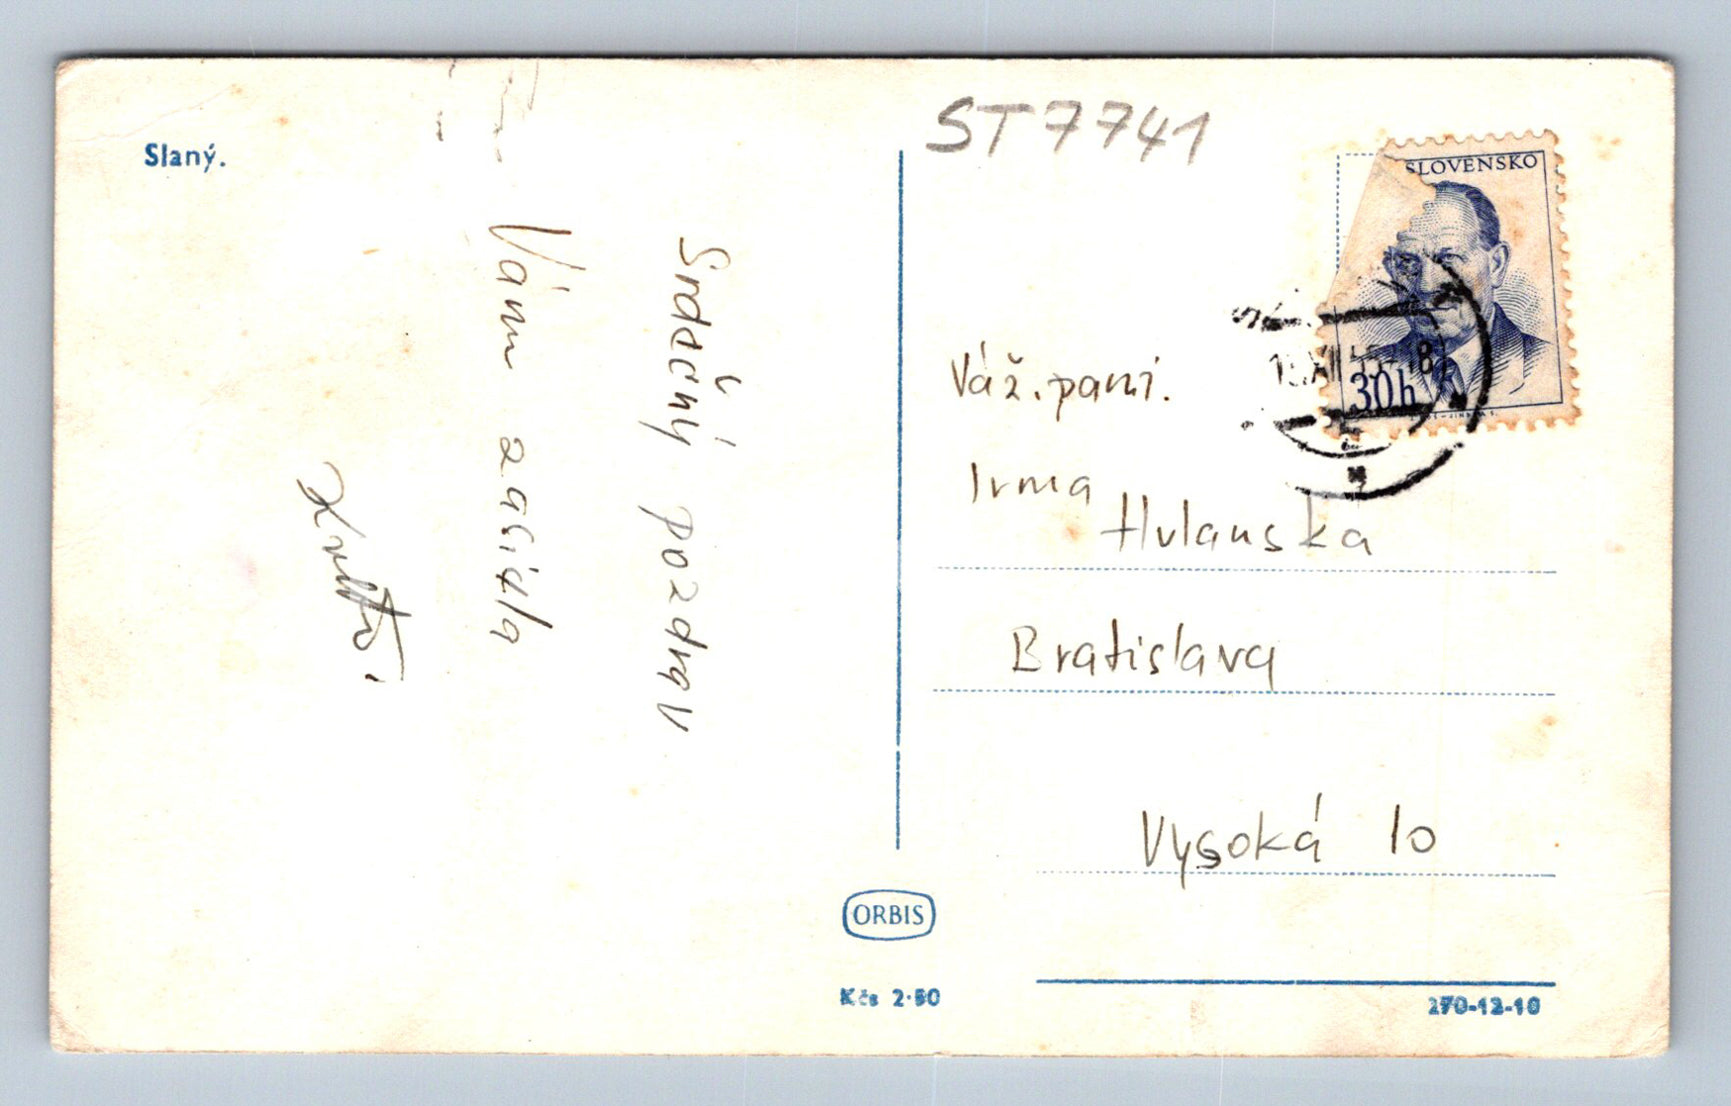 Slaný.
Srdečný pozdrav
Vám zasiela
ST7741
SLOVENSKO
30h
Váž. pani.
Irma
Hulanska
Bratislava
Vysoká 10
ORBIS
Kčs 2·50
270-12-10